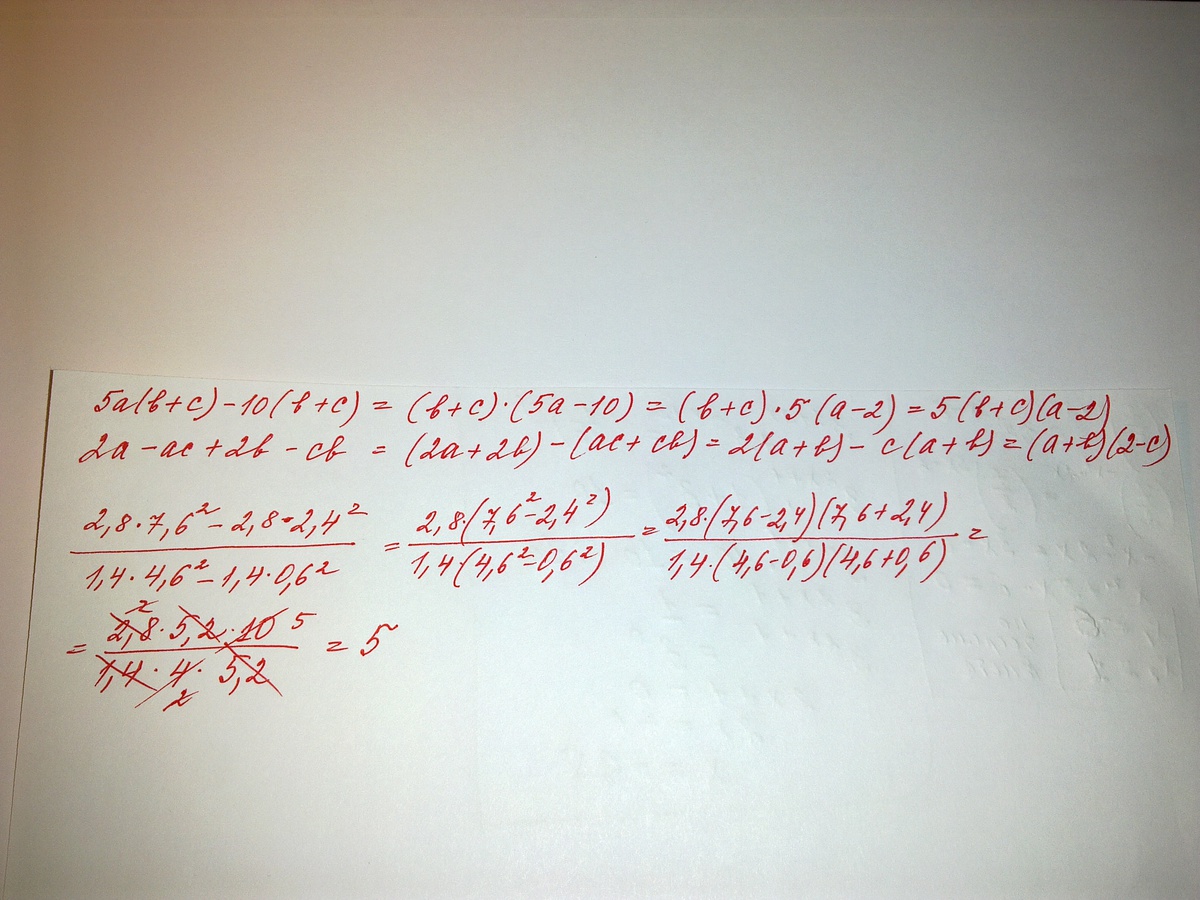 5a(b+c)-10(b+c) = (b+c)·(5a-10) = (b+c)·5(a-2) = 5(b+c)(a-2)
2a-ac+2b-cb = (2a+2b)-(ac+cb) = 2(a+b)-c(a+b) = (a+b)(2-c)
2,8·7,6²-2,8·2,4² / 1,4·4,6²-1,4·0,6² = 2,8·(7,6²-2,4²) / 1,4(4,6²-0,6²) = 2,8·(7,6-2,4)(7,6+2,4) / 1,4·(4,6-0,6)(4,6+0,6) =
2
= 2,8·5,2·10 5 / 1,4·4·5,2 = 5
2